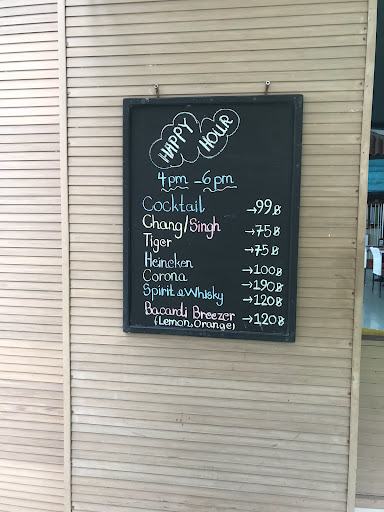 HAPPY
HOUR
4pm - 6pm
Cocktail →99฿
Chang/Singh →75฿
Tiger →75฿
Heineken →100฿
Corona →190฿
Spirit & Whisky →120฿
Bacardi Breezer →120฿
(Lemon, Orange)